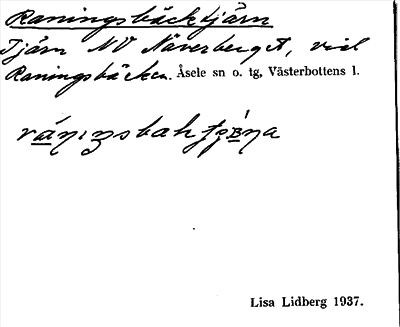 Raningsbäcktjärn
Tjärn NV Näverberget, vid
Raningsbäcken. Åsele sn o. tg, Västerbottens l.
Lisa Lidberg 1937.